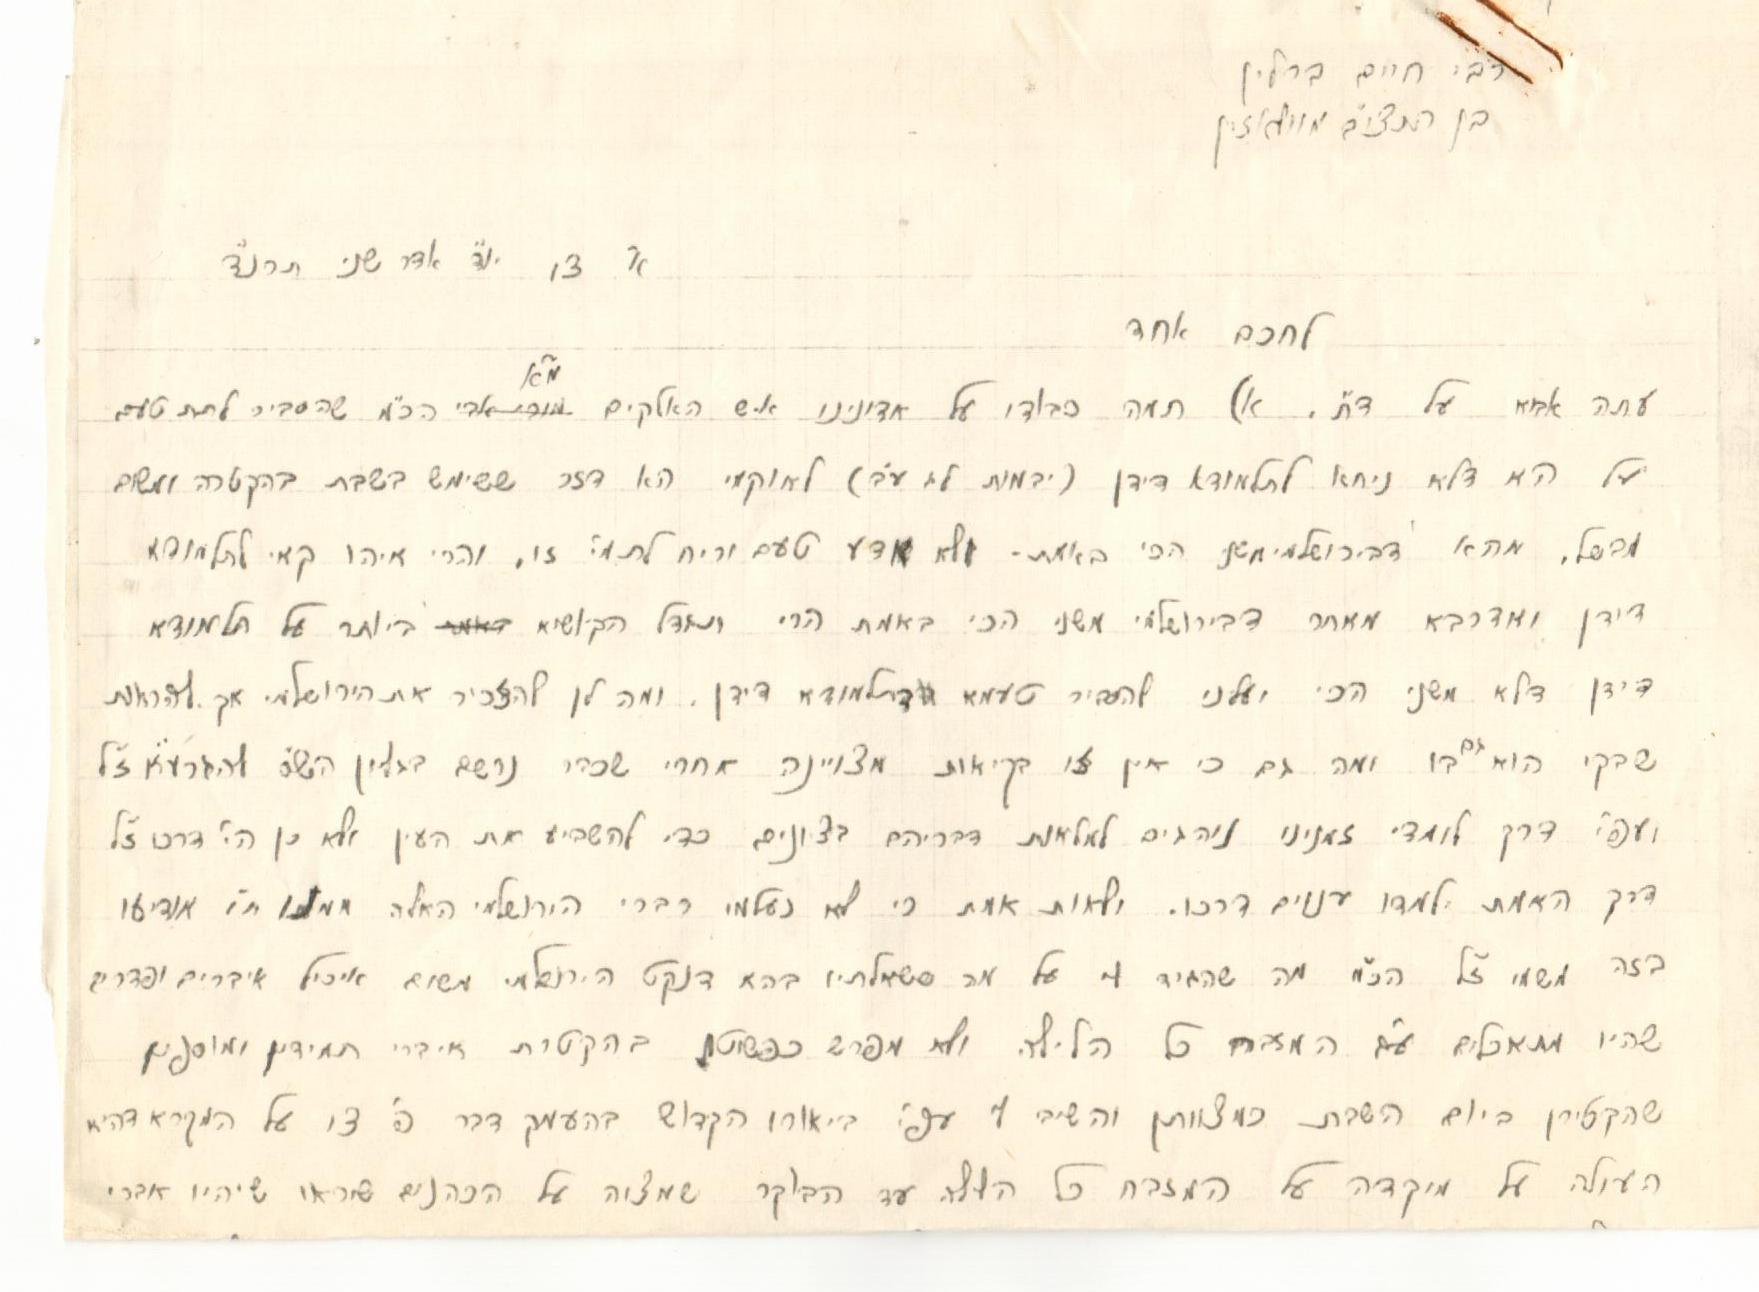 רבי חיים ברלין
בן הנצי"ב מוולאזין
א' צו י"ד אדר שני תרנ"ד
לחכם אחד
עתה אבא על ד"ת. א) תמה כבודו על אדונינו איש האלקים מו"ר אבי מ"א הכ"מ שהסביר לתת טעם
על הא דלא ניחא לתלמודא דידן (יבמות לג ע"ב) לאוקמי הא דזר ששימש בשבת בהקטרה ומשום
מבשל, מהא דבירושלמי משני הכי באמת. ולא אדע טעם וריח לתמי' זו, והרי איהו קאי לתלמודא
דידן ואדרבא מאחר דבירושלמי משני הכי באמת הרי תגדל הקושיא באמת ביותר על תלמודא
דידן דלא משני הכי ועלינו להסביר טעמא דתלמודא דידן. ומה לן להזכיר את הירושלמי אך להראות
שבקי הוא גם בו ומה גם כי אין זו בקיאות מצויינה אחרי שכבר נרשם בגליון הש"ס להגרע"א ז"ל
ועפ"י דרך לומדי זמנינו נוהגים למלאות דבריהם בציונים כדי להשביע את העין ולא כן הי' דרכו ז"ל
דרך האמת ילמדו ענוים דרכו. ולאות אמת כי לא נעלמו דברי הירושלמי האלה ממנו הי' מודיעו
בזה משמי' ז"ל הכ"מ מה שהגיד לי על מה ששאלתיו בהא דנקט הירושלמי משום איכול איברים ופדרים
שהיו מתאכלים ע"ג המזבח כל הלילה ולא מפרש כפשוטו בהקטרת איברי תמידין ומוספין
שהקטירן ביום השבת כמצוותן והשיב לי עפ"י ביאורו הקדוש בהעמק דבר פ' צו על המקרא דהיא
העולה על מוקדה על המזבח כל הלילה עד הבוקר שמצוה על הכהנים שיראו שיהיו אברי